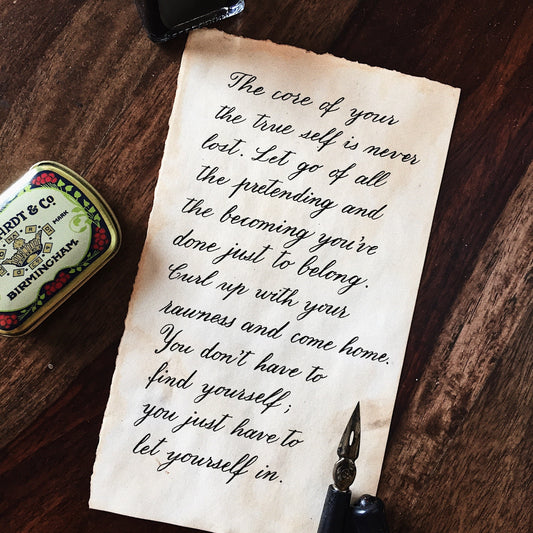 The core of your
the true self is never
lost. Let go of all
the pretending and
the becoming you've
done just to belong.
Curl up with your
rawness and come home.
You don't have to
find yourself;
you just have to
let yourself in.
ARDT & Co
MARK
BIRMINGHAM